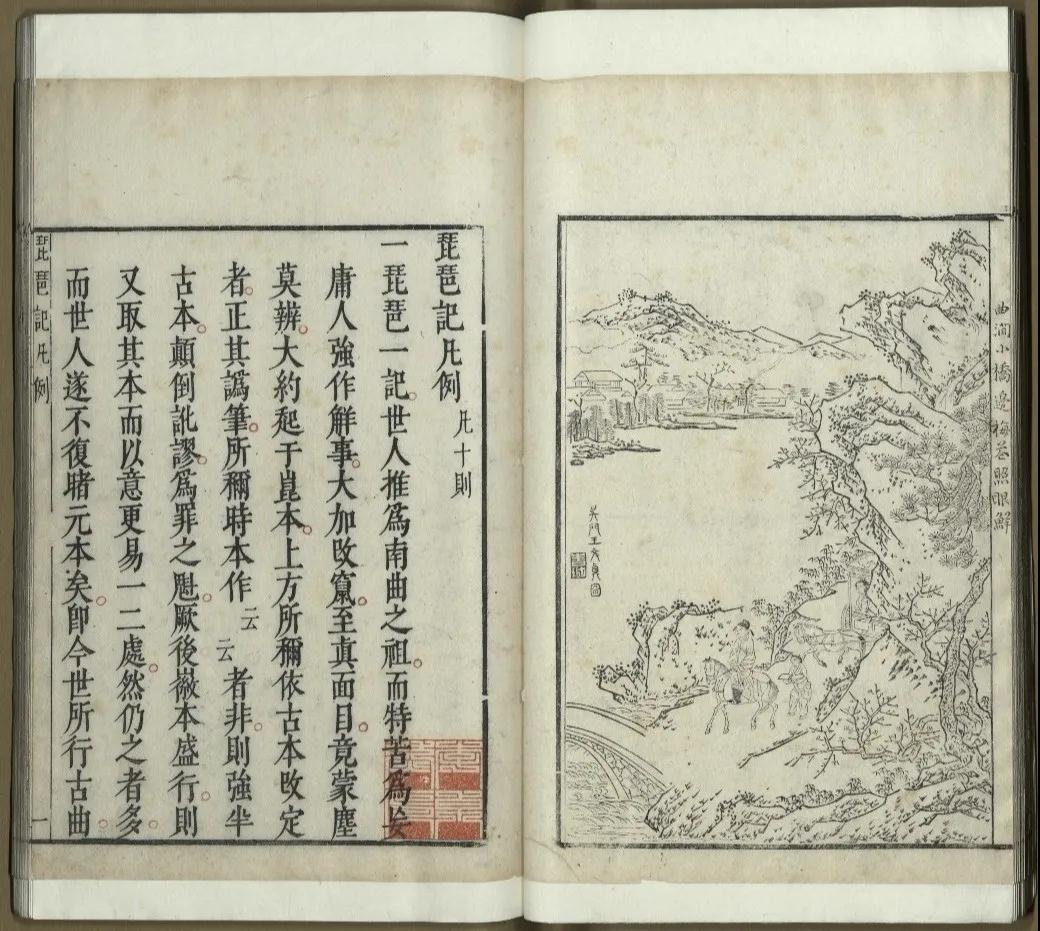 曲澗小橋邊梅花照眼鮮
吳門王文
琵琶記凡例 凡十則
一琵琶一記。世人推爲南曲之祖。而特苦爲妄
庸人強作解事。大加改竄。至眞面目。竟蒙塵
莫辨。大約起于崑本。上方所穪依古本改定
者。正其譌筆。所穪時本作云云者非。則強半
古本。顚倒訛謬。爲罪之魁。厥後徽本盛行。則
又取其本而以意更易一二處。然仍之者多。
而世人遂不復睹元本矣。卽今世所行古曲。
琵琶記凡例 一